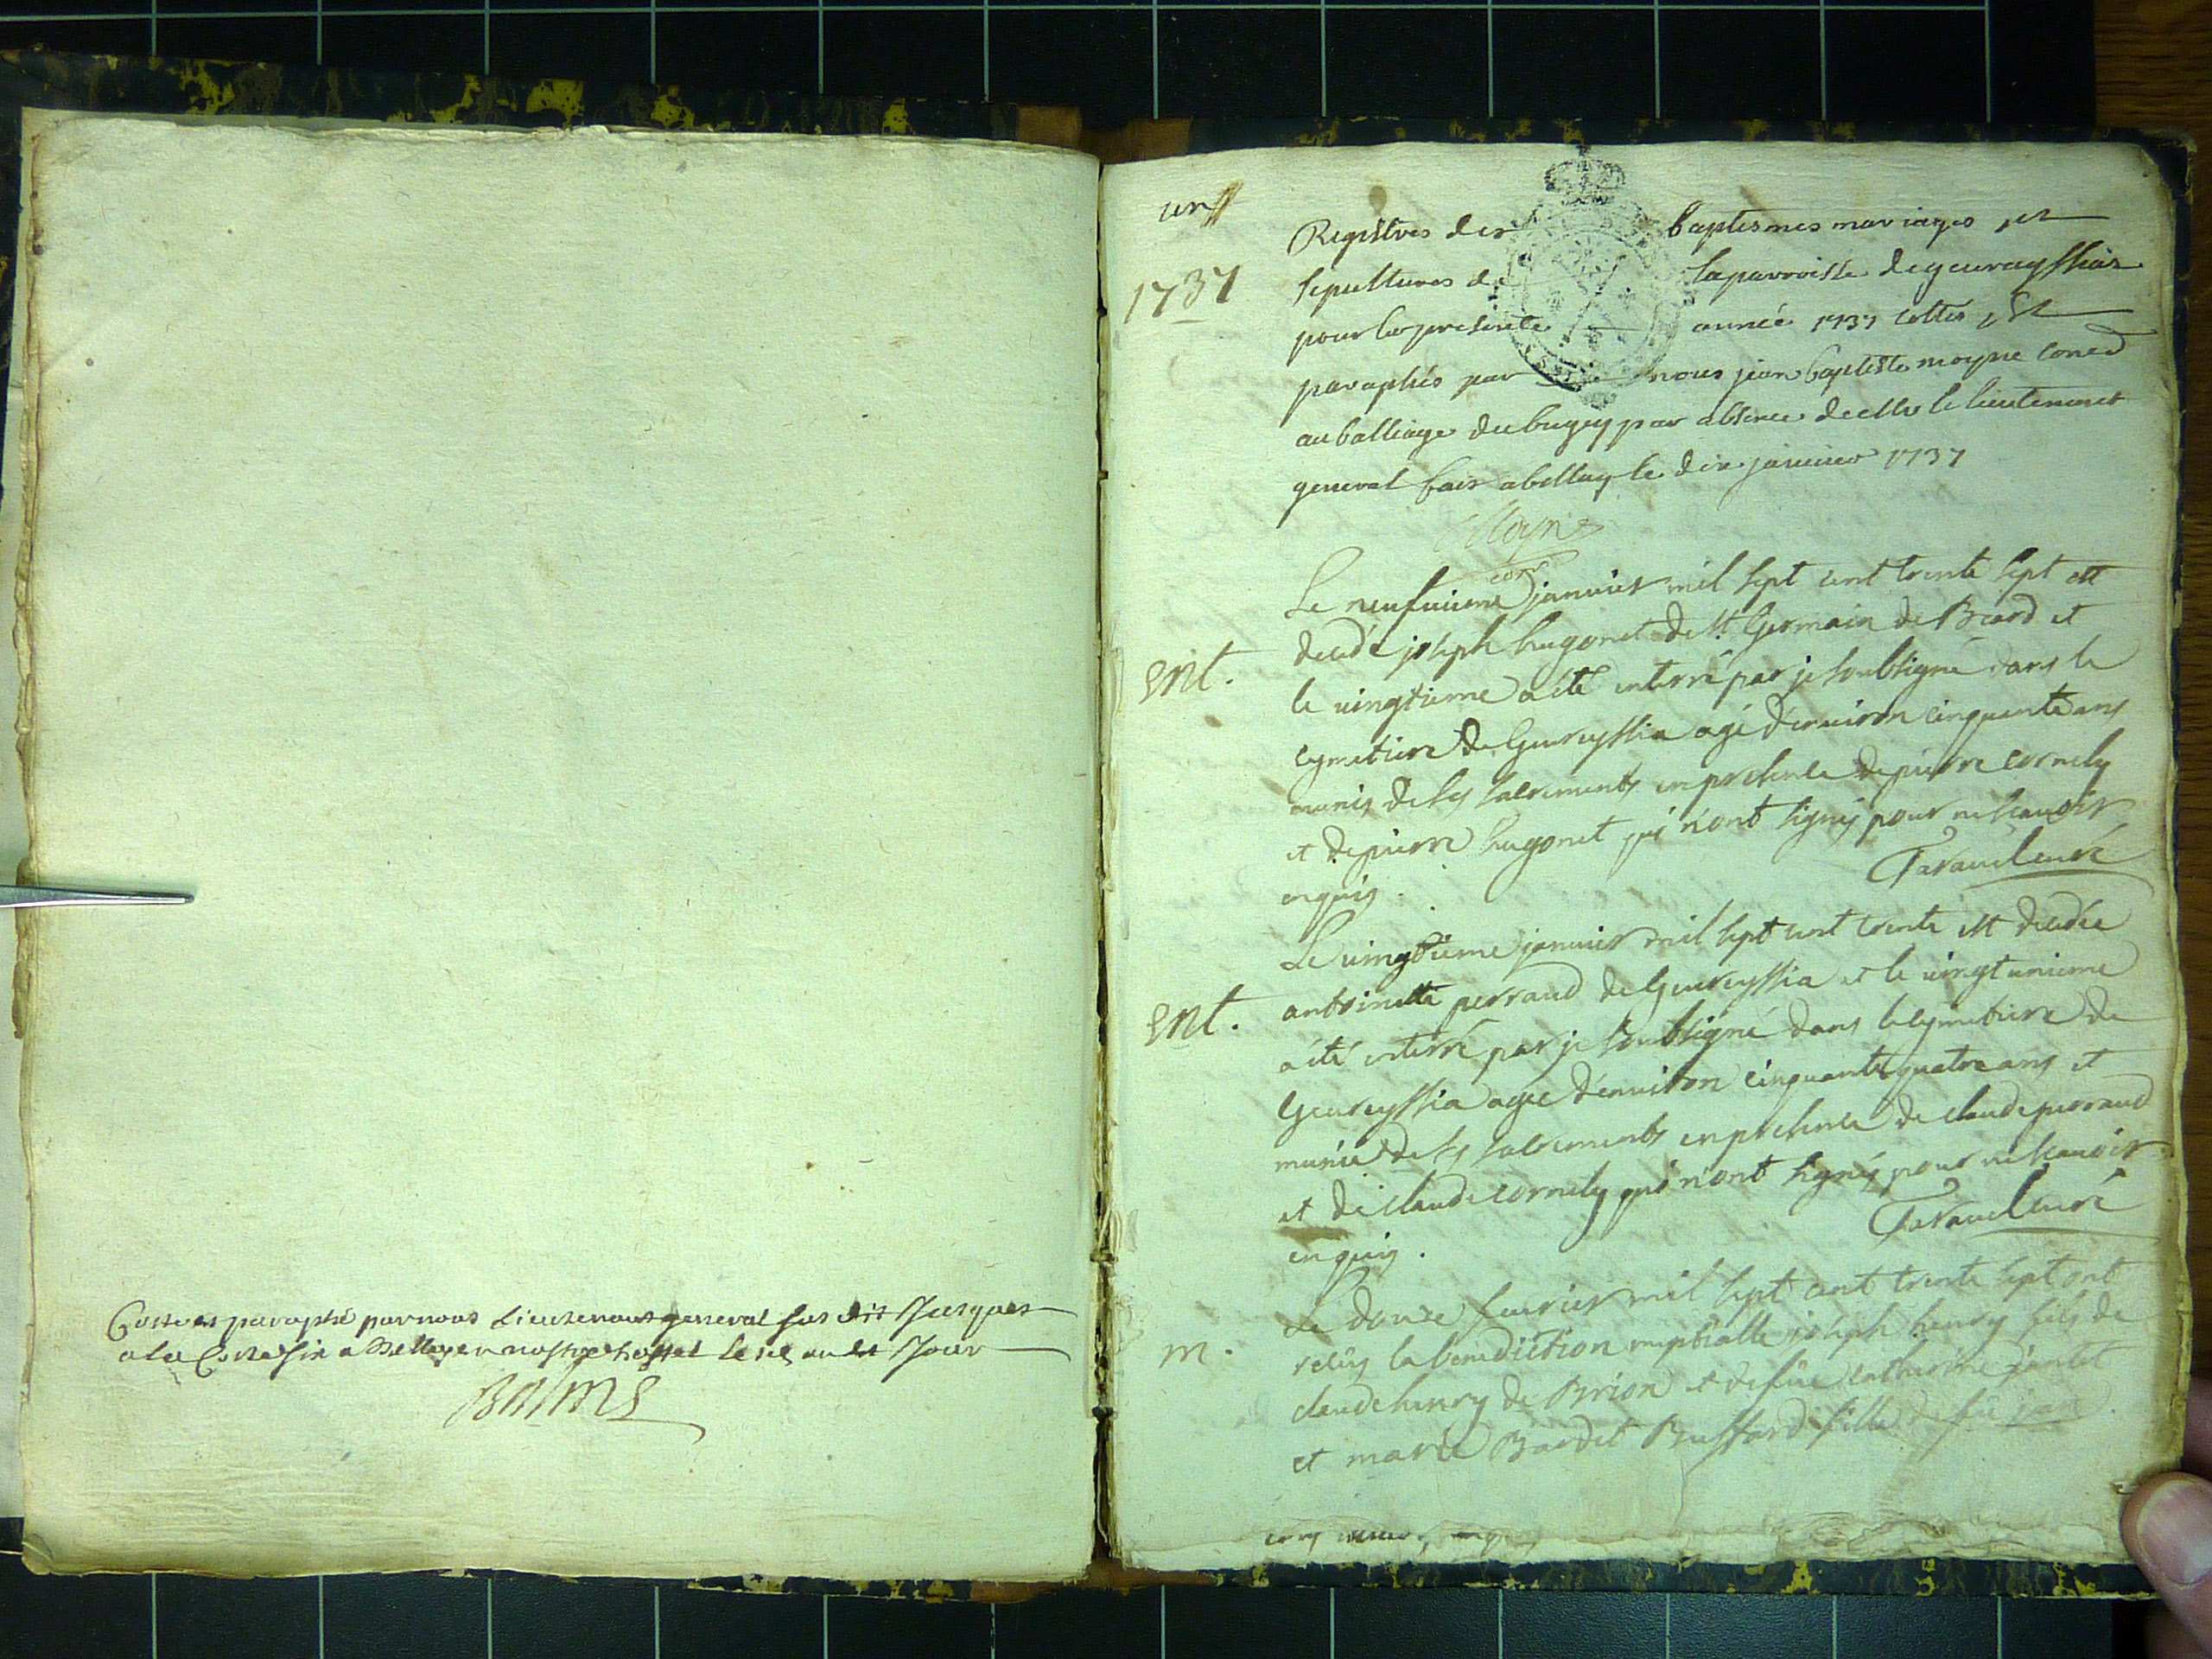 Cotté et paraphé par nous Lieutenant general sus dit Jusques
a la Belley en nostre hostel le
Balme
un
1737
Registres des baptesmes mariages et
sepultures de la parroisse de geurayssiat
pour la presente année 1737 cottés et
paraphés par nous jean baptiste moyne
au balliage du bugey par absence de le lieutenant
general fait a bellay le dix janvier 1737
Moyne
Le neufuieme januier mil sept cent trente sept est
decedé joseph hugonet de st Germain de Beard et
ent.
le uingtieme a été enterré par je soubsigné dans le
cymetiere de Geureyssia agé d'enuiron cinquante ans
munis de ses sacrements en presence de pierre cornely
et de pierre hugonet qui n'ont signés pour ne scauoir
enquis.
Tavaud curé
Le uingtieme januier mil sept cent trente est decedée
ent.
antoinette perraud de Geureyssia et le uingt unieme
a été enterré par je soubsigné dans le cymetiere de
Geureyssia agée d'enuiron cinquante quatre ans et
munie de ses sacrements en presence de claude perraud
et de claude cornely qui n'ont signés pour ne scauoir
enquis.
Tavaud curé
Le douze feurier mil sept cent trente sept ont
m.
reçus la benediction nuptialle joseph henry fils de
claude henry de Brion et de fue catherine jantet
et marie Bardet Buffard fille de fû jean